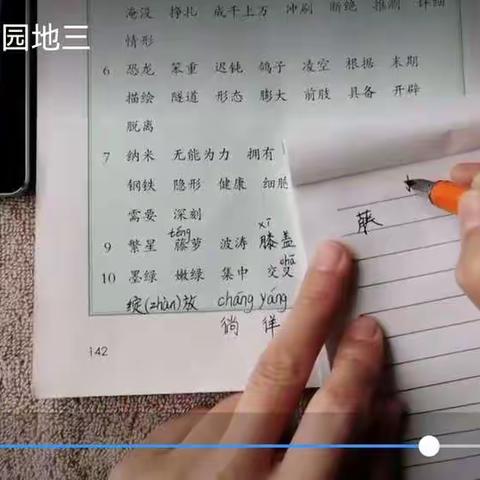 园地三
淹没 挣扎 成千上万 冲刷 断绝 推测 详细
情形
6 恐龙 笨重 迟钝 鸽子 凌空 根据 末期
描绘 隧道 形态 膨大 前肢 具备 开辟
脱离
7 纳米 无能为力 拥有
钢铁 隐形 健康 细胞
需要 深刻
téng xī
9 繁星 藤萝 波涛 膝盖
chā
10 墨绿 嫩绿 集中 交叉
绽(zhàn)放 cháng yáng
徜 徉
142